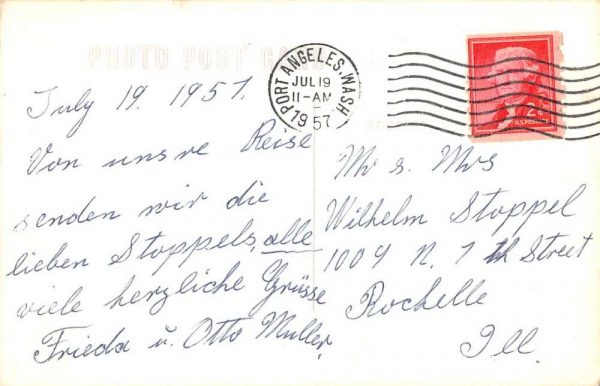 PHOTO POST CARD
PORT ANGELES, WASH
JUL 19
11-AM
1957
2¢
U.S. POSTAGE
July 19. 1957.
Von unsre Reise
senden wir die
lieben Stoppels, alle
viele herzliche Grüsse
Frieda u. Otto Muller.
Mr s. Mrs
Wilhelm Stoppel
1009 N. 7 th Street
Rochelle
Ill.